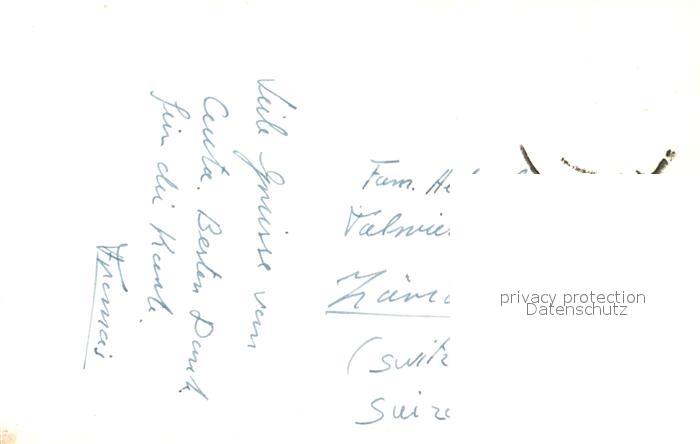 Viele Grüsse vom
Ceuta. Besten Dank
für die Karte.
Fam. He
Talwies
Züric
(Switz
Suiza
privacy protection
Datenschutz